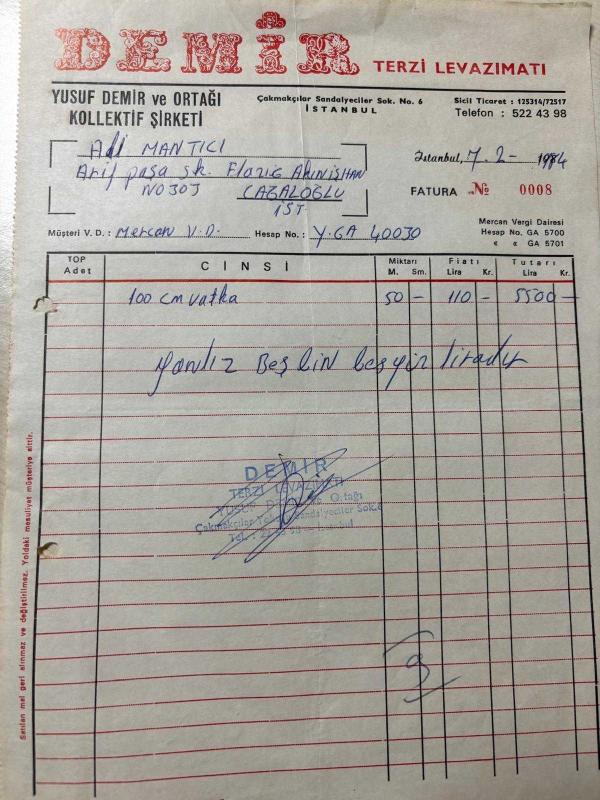 DEMİR TERZİ LEVAZIMATI
YUSUF DEMİR ve ORTAĞI
KOLLEKTİF ŞİRKETİ
Çakmakçılar Sandalyeciler Sok. No. 6
İSTANBUL
Sicil Ticaret : 125314/72517
Telefon : 522 43 98
MANTICI
Arif paşa sk.
NO303 CAĞALOĞLU
İST.
İstanbul, 7-2-1984
FATURA No 0008
Müşteri V. D. : Mercan V.D. Hesap No. : Y.GA 40030
Mercan Vergi Dairesi
Hesap No. GA 5700
« « GA 5701
TOP Adet
CİNSİ
Miktarı M. Sm.
Fiatı Lira Kr.
Tutarı Lira Kr.
100 cm vatka 50 — 110 — 5500 —
Yanlız Beş bin beşyüz liradır
DEMİR
TERZİ LEVAZIMATI
Satılan mal geri alınmaz ve değiştirilmez. Yoldaki mesuliyet müşteriye aittir.
9